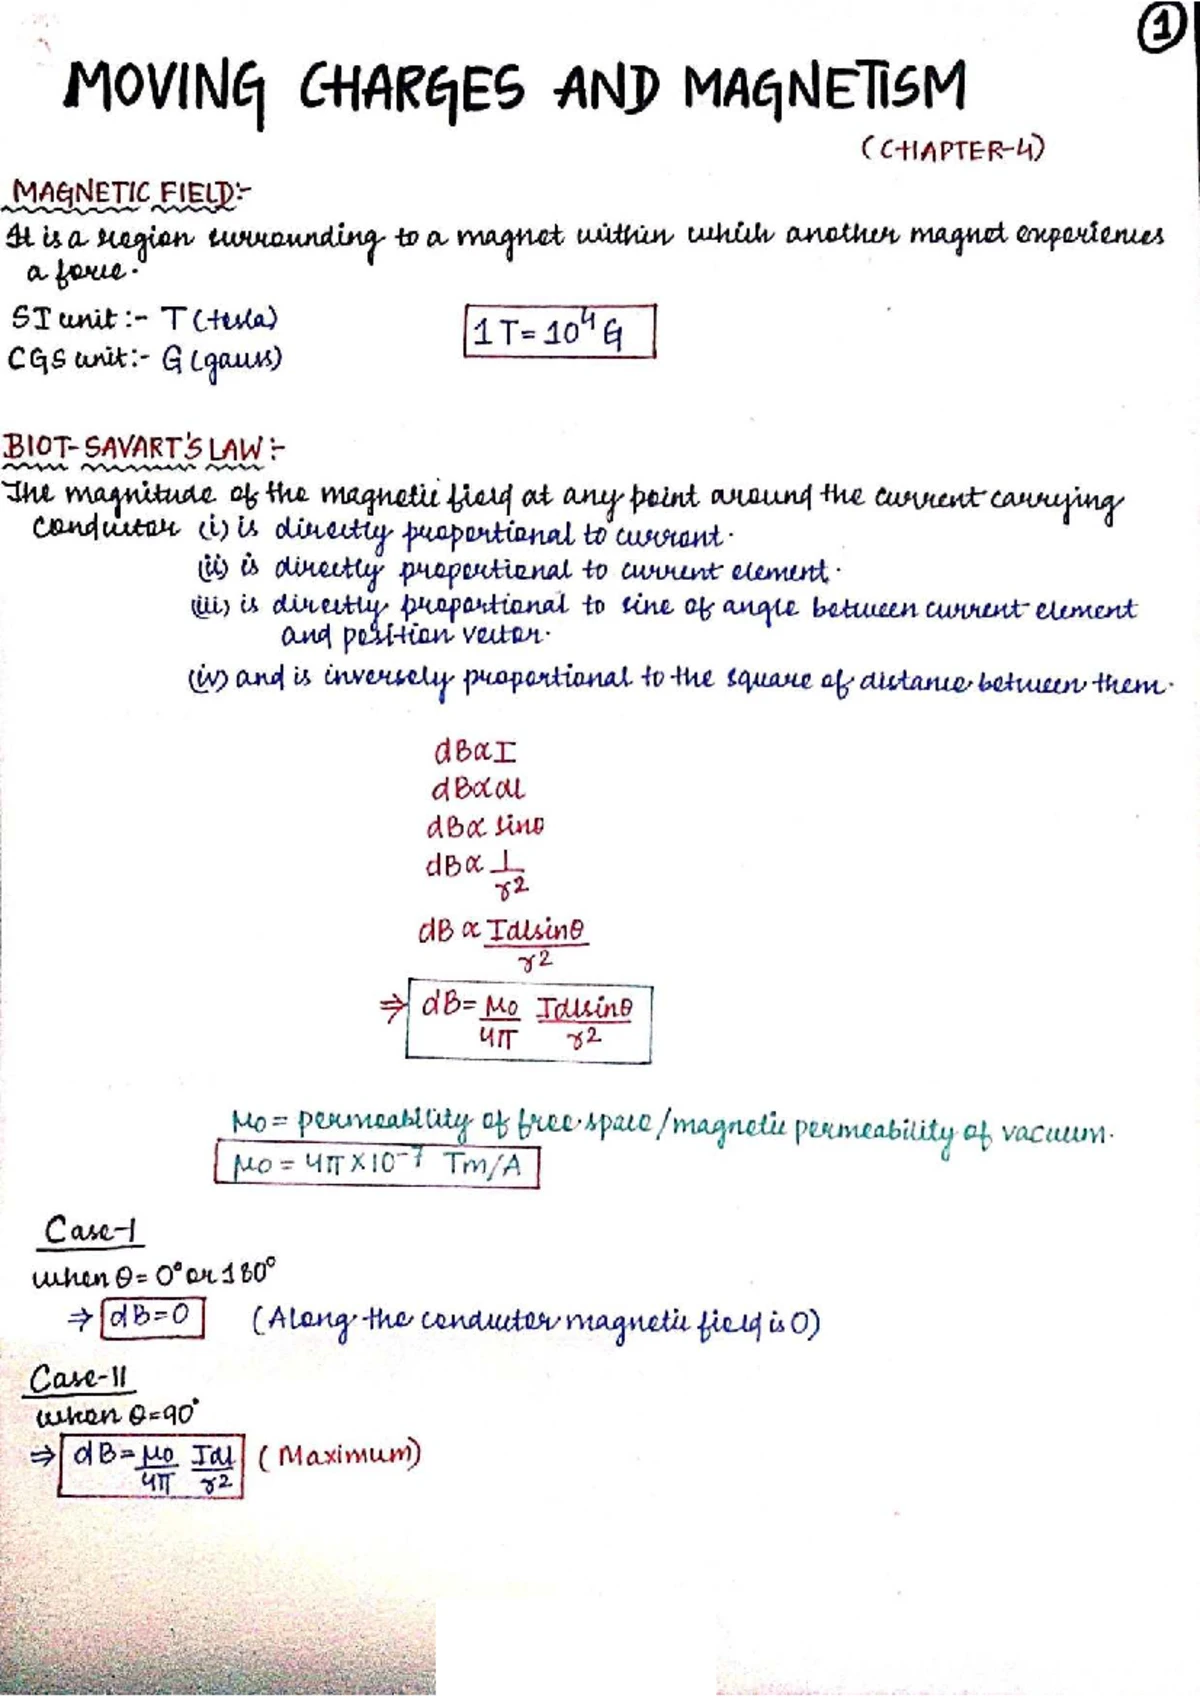 1
MOVING CHARGES AND MAGNETISM
(CHAPTER-4)
MAGNETIC FIELD:-
It is a region surrounding to a magnet within which another magnet experiences
a force.
SI unit :- T (tesla)
1 T = 10⁴ G
CGS unit:- G (gauss)
BIOT-SAVART'S LAW :-
The magnitude of the magnetic field at any point around the current carrying
conductor (i) is directly proportional to current.
(ii) is directly proportional to current element.
(iii) is directly proportional to sine of angle between current element
and position vector.
(iv) and is inversely proportional to the square of distance between them.
dB ∝ I
dB ∝ dl
dB ∝ sinθ
dB ∝ 1/r²
dB ∝ Idlsinθ/r²
⇒ dB = μ₀/4π Idlsinθ/r²
μ₀ = permeability of free space / magnetic permeability of vacuum.
μ₀ = 4π × 10⁻⁷ Tm/A
Case-I
when θ = 0° or 180°
⇒ dB = 0 (Along the conductor magnetic field is 0)
Case-II
when θ = 90°
⇒ dB = μ₀/4π Idl/r² (Maximum)